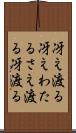 冴え渡る
冴えわた
るさえ渡
る冴渡る